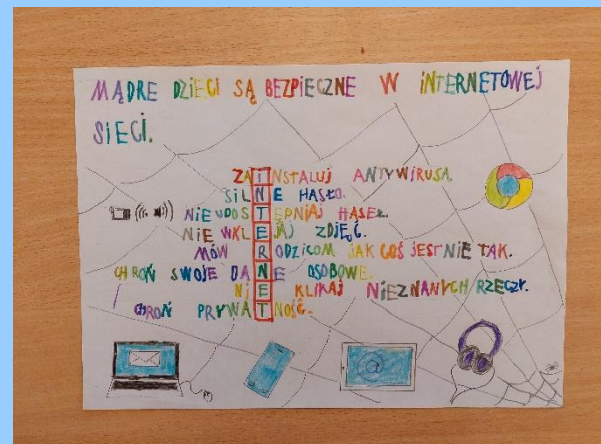 MĄDRE DZIECI SĄ BEZPIECZNE W INTERNETOWEJ
SIECI.
ZAINSTALUJ ANTYWIRUSA.
SILNE HASŁO.
NIE UDOSTĘPNIAJ HASEŁ.
NIE WKLEJAJ ZDJĘĆ.
MÓW RODZICOM JAK COŚ JEST NIE TAK.
CHROŃ SWOJE DANE OSOBOWE.
NIE KLIKAJ NIEZNANYCH RZECZY.
CHROŃ PRYWATNOŚĆ.
@